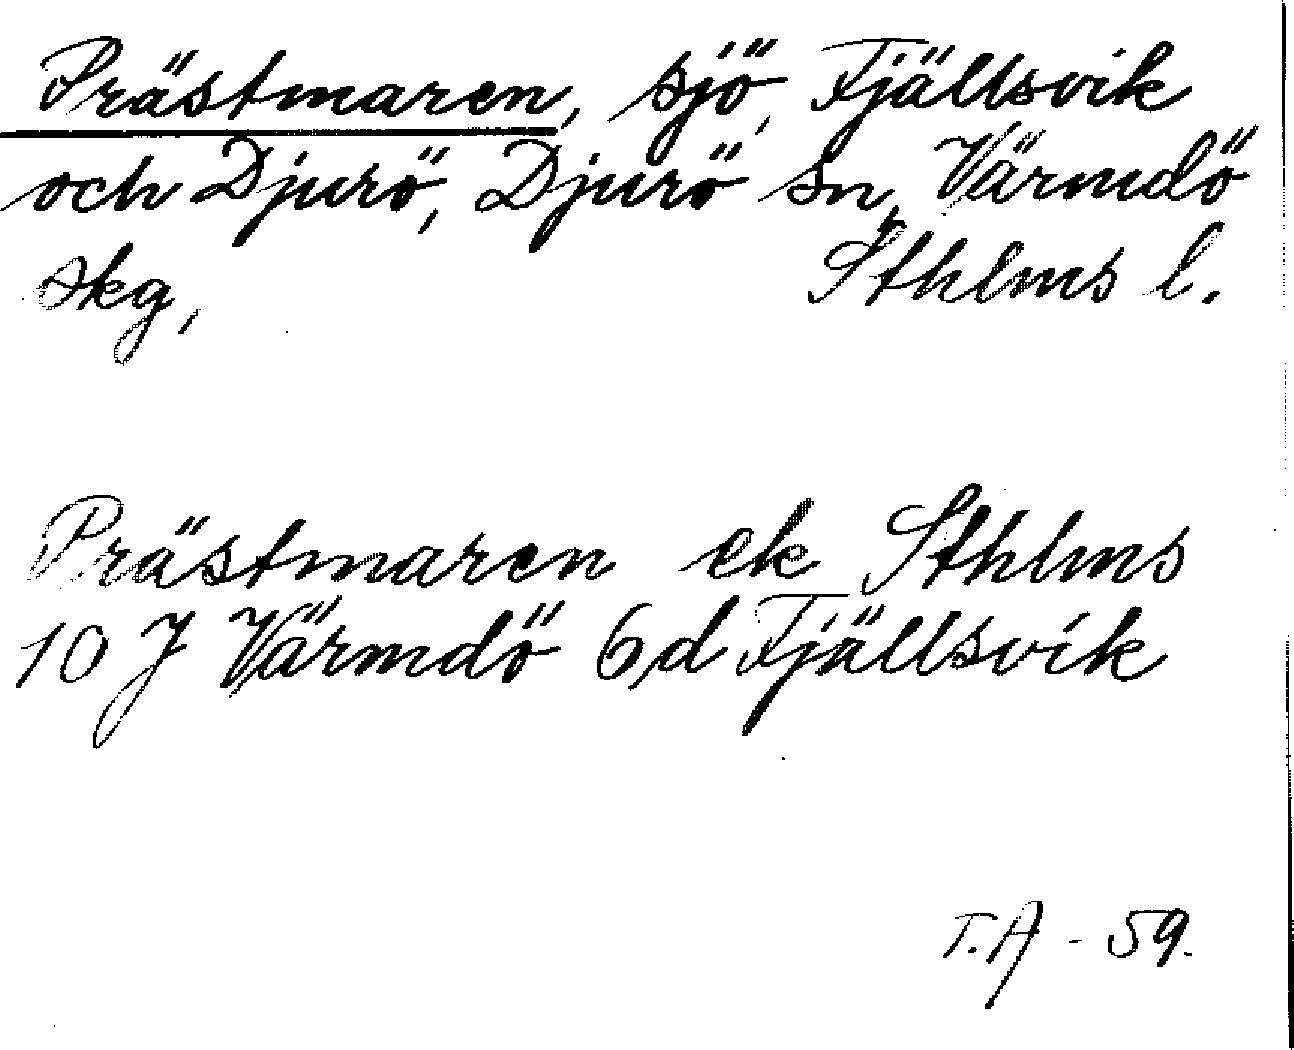 Prästmaren, sjö, Fjällsvik
och Djurö, Djurö sn, Värmdö
skg, Sthlms l.
Prästmaren ek Sthlms
10 J Värmdö 6d Fjällsvik
T.A - 59.